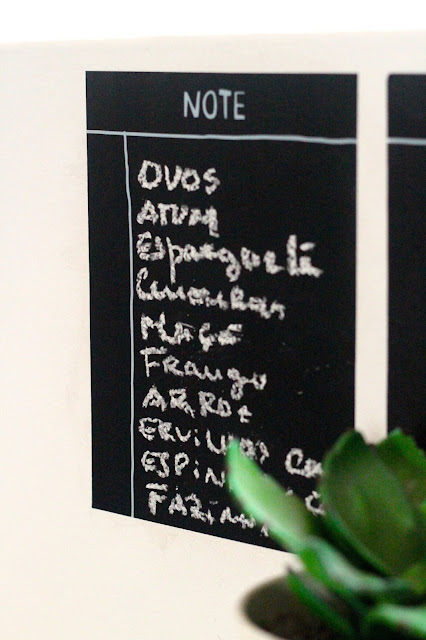 NOTE
OVOS
ATUM
Esparguete
Cenouras
MAÇÃ
Frango
ARROZ
ERVILHAS